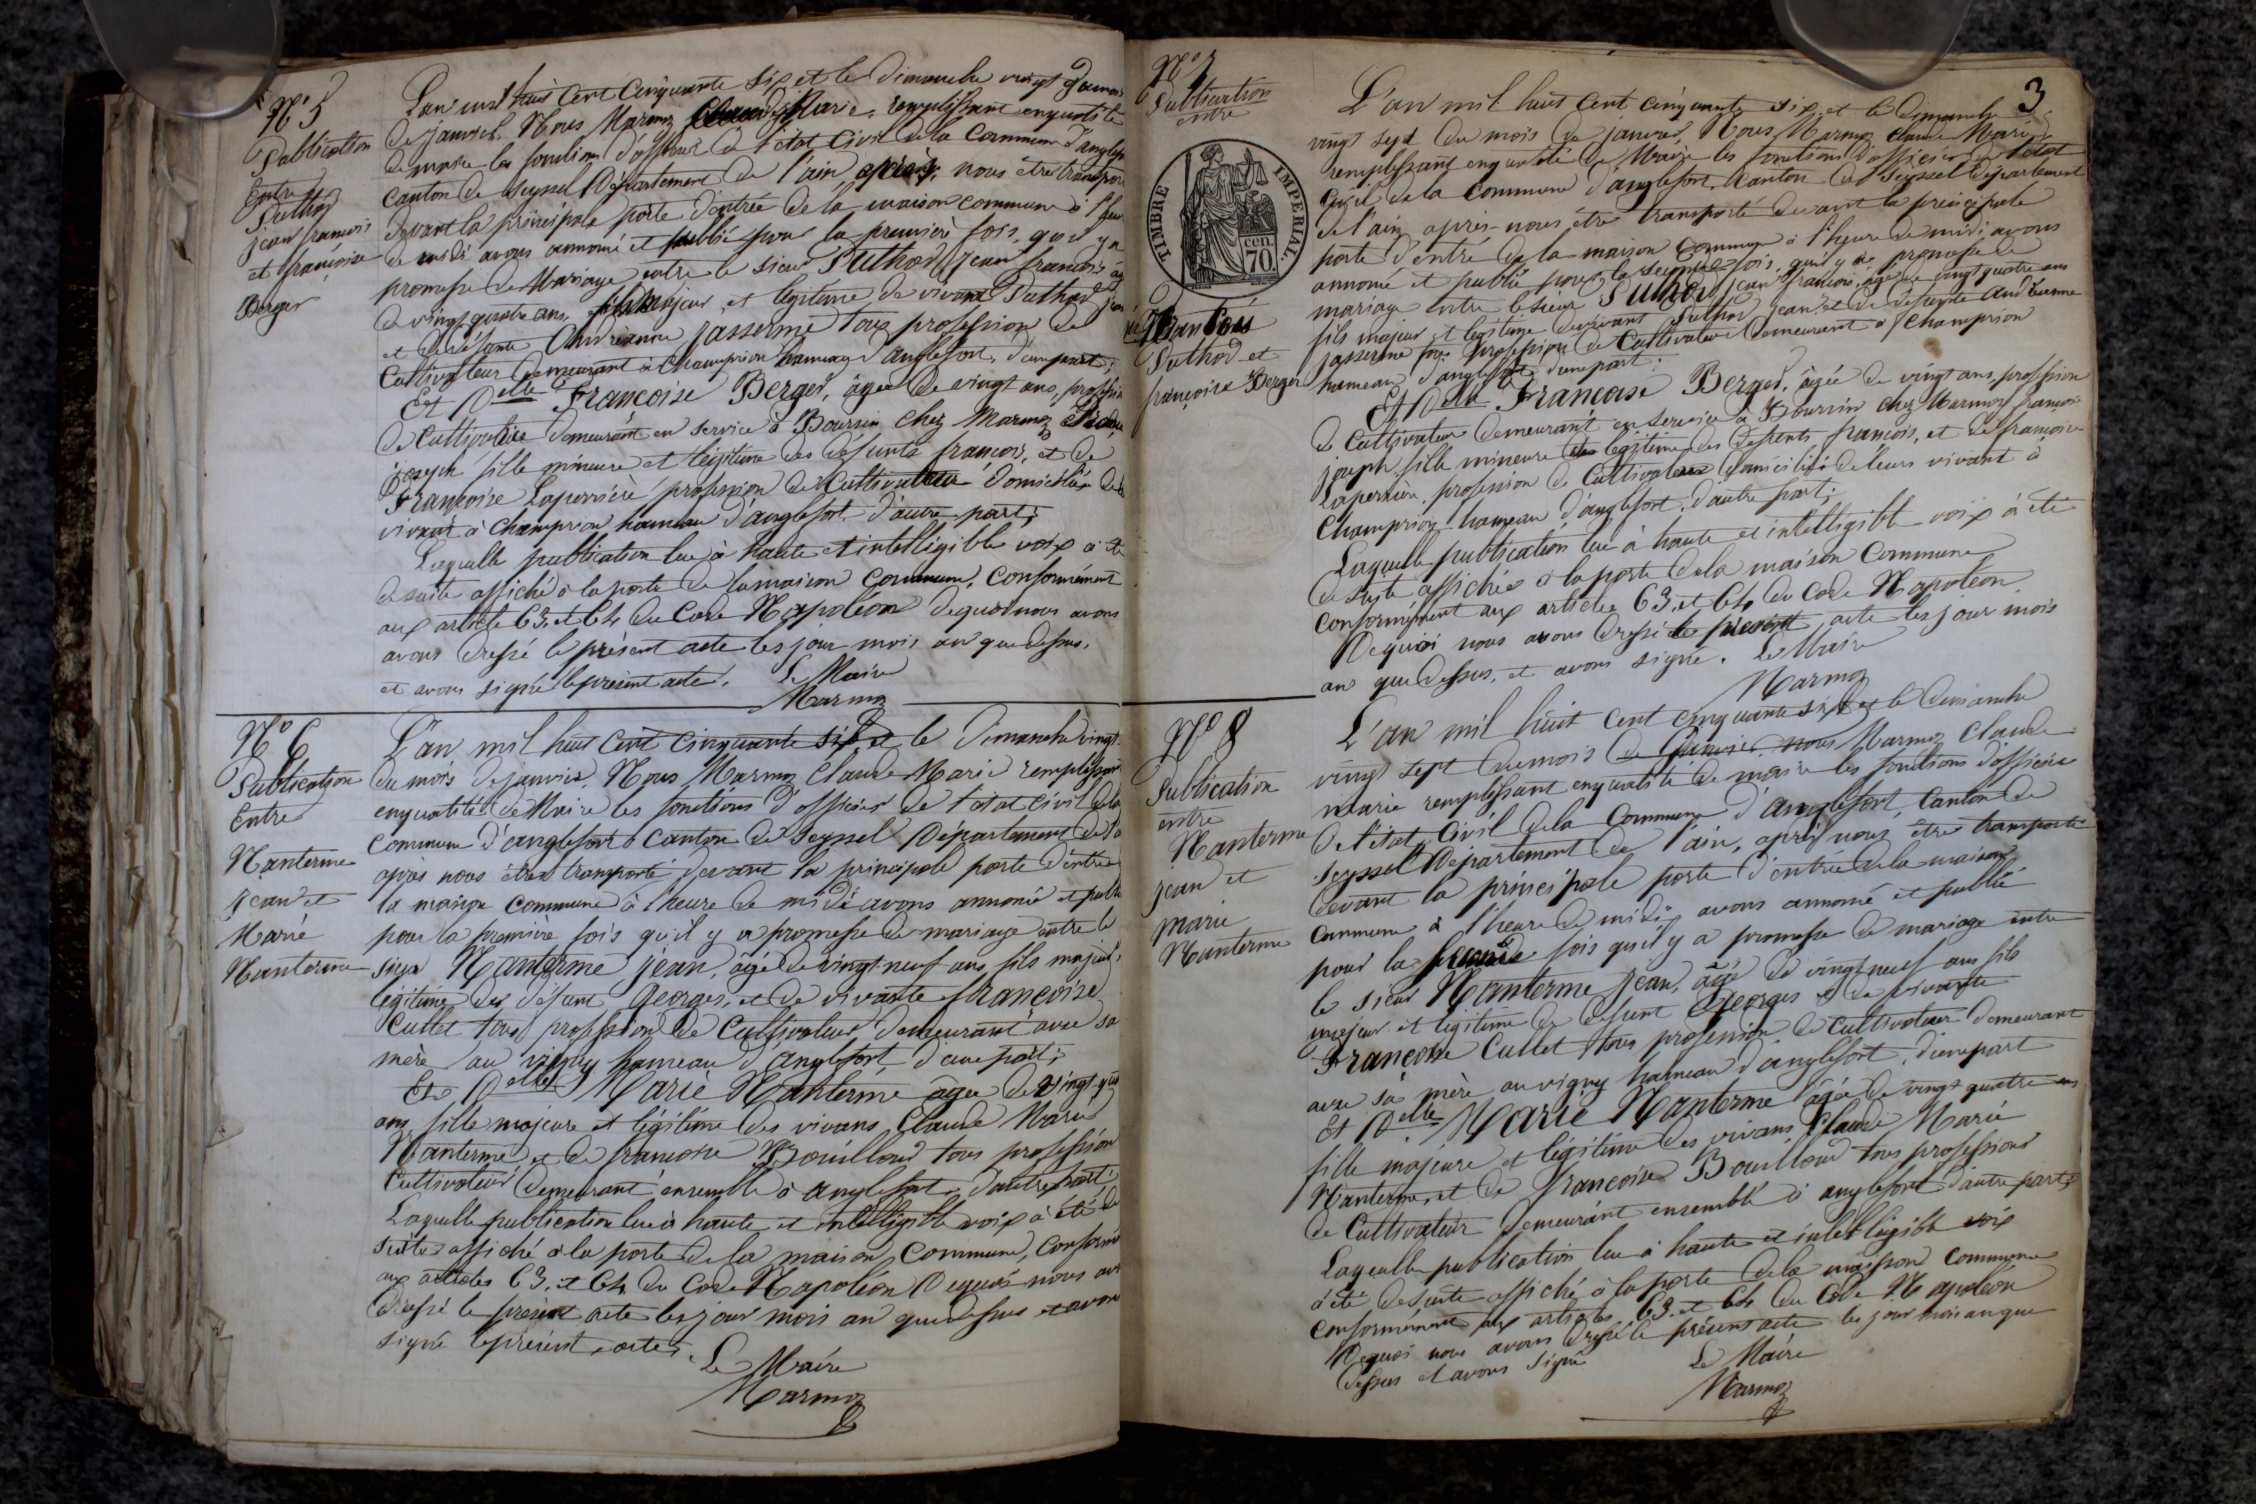 N° 5
Publication
Entre
Puthod
jean francois
et françoise
Berger
L'an mil huit Cent Cinquante Six et le Dimanche vingt
De janvier. Nous Marmoz Claude Marie, remplissant enqualité
de maire les fonctions d'officier de l'état Civil de la Commune d'anglefort
canton de Seyssel Département de l'ain après, nous être transporté
devant la principale porte d'entrée de la maison commune à l'heure
de midi avons annoncé et publié pour la première fois, qu'il y a
promesse de Mariage entre le sieur Puthod jean francois âgé
de vingt quatre ans, fils majeur, et légitime de vivant Puthod jean
et de défunte Andréanne jasserme tous profession de
Cultivateur demeurant à Champrion hameau d'anglefort, d'unepart;
Et Delle Françoise Berger, âgée de vingt ans, profession
de Cultivatrice demeurant en service à Boursin Chez Marmoz
joseph fille mineure et légitime des défunts françois, et de
Françoise Laperrière profession de Cultivateur domiciliés de
vivant à Champrion hameau d'anglefort d'autre part;
Laquelle publication lue à haute et intelligible voix à été
de suite affiché à la porte de la maison Commune, Conformément
aux article 63, et 64 du Code Napoléon dequoi nous avons
avons dressé le présent acte les jour mois an que dessus,
et avons signé le présent acte. Le Maire
Marmoz
N° 6
Publication
Entre
Nanterme
Jean et
Marie
Nanterme
L'an mil huit Cent Cinquante Six et le Dimanche vingt
du mois de janvier, Nous Marmoz Claude Marie remplissant
enqualité de Maire les fonctions d'officier de l'état Civil de la
Commune d'anglefort Canton de Seyssel Département de l'ain
après nous être transporté devant la principale porte d'entrée
la maison Commune à l'heure de midi avons annoncé et publié
pour la première fois qu'il y a promesse de mariage entre le
sieur Nanterme jean, âgé de vingt neuf ans, fils majeur,
légitime de défunt Georges, et de vivante Françoise
Cullet tous profession de Cultivateur demeurant avec sa
mère au vigny hameau d'anglefort, d'une part;
Et Delle Marie Nanterme âgée de vingt quatre
ans, fille majeure et légitime des vivans Claude Marie
Nanterme et de françoise Bouilloud tous profession
Cultivateur demeurant ensemble à anglefort, d'autre part;
Laquelle publication lue à haute et intelligible voix à été de
suite affiché à la porte de la maison, Commune, Conformé
aux articles 63, et 64 du Code Napoléon Dequoi nous avons
dressé le présent acte les jour mois an que dessus et avons
signé le présent acte,
Le Maire
Marmoz
3
N° 7
Publication
entre
TIMBRE IMPERIAL.
cen.
70
Puthod et
françoise Berger
L'an mil huit Cent cinquante six, et le dimanche
vingt sept du mois de janvier, Nous Marmoz Claude Marie
remplissant enqualité de Maire les fonctions d'officier de l'état
Civil de la Commune d'anglefort, Canton de Seyssel département
de l'ain après nous être transporté devant la principale
porte d'entré de la maison Commune à l'heure de midi avons
annoncé et publié pour la seconde fois, qu'il y a promesse de
mariage entre le sieur Puthod jean françois, âgé de vingt quatre ans
fils majeur et légitime de vivant Puthod jean, et de défunte Andréanne
jasserme tous profession de Cultivateur demeurant à Champrion
hameau d'anglefort d'unepart;
Et Delle Françoise Berger, âgée de vingt ans, profession
de Cultivateur demeurant en service à Boursin Chez Marmoz françois
joseph, fille mineure légitime des défunts francois, et de françoise
Laperrière, profession de Cultivateur domiciliés de leurs vivant à
Champrion hameau d'anglefort, d'autre part;
Laquelle publication lue à haute et intelligible voix à été
de suite affichée à la porte de la maison Commune
Conformément aux article 63, et 64 du Code Napoléon,
Dequoi nous avons dressé le présent acte les jour mois
an que dessus, et avons signé. Le Maire
Marmoz
N° 8
Publication
entre
Nanterme
jean et
marie
Nanterme
L'an mil huit cent cinquante six, et le dimanche
vingt sept du mois de Janvier nous Marmoz Claude
marie remplissant enqualité de maire les fonctions d'officier
de l'état Civil de la Commune d'anglefort, Canton de
Seyssel Département de l'ain, après nous être transporté
devant la principale porte d'entrée de la maison
Commune à l'heure de midi avons annoncé et publié
pour la seconde fois qu'il y a promesse de mariage entre
le sieur Nanterme jean, âgé de vingt neuf ans fils
majeur et légitime de défunt Georges et de vivante
Françoise Cullet tous profession de Cultivateur demeurant
avec sa mère au vigny hameau d'anglefort, d'unepart
Et Delle Marie Nanterme âgée de vingt quatre ans
fille majeure et légitime des vivans Claude Marie
Nanterme, et de Françoise Bouilloud tous profession
de Cultivateur demeurant ensemble à anglefort d'autre part;
Laquelle publication lue à haute et intelligible voix
à été de suite affiché à la porte de la maison Commune
Conformément aux articles 63, et 64 du Code Napoléon
Dequoi nous avons dressé le présent acte les jour mois an que
dessus et avons signé
Le Maire
Marmoz